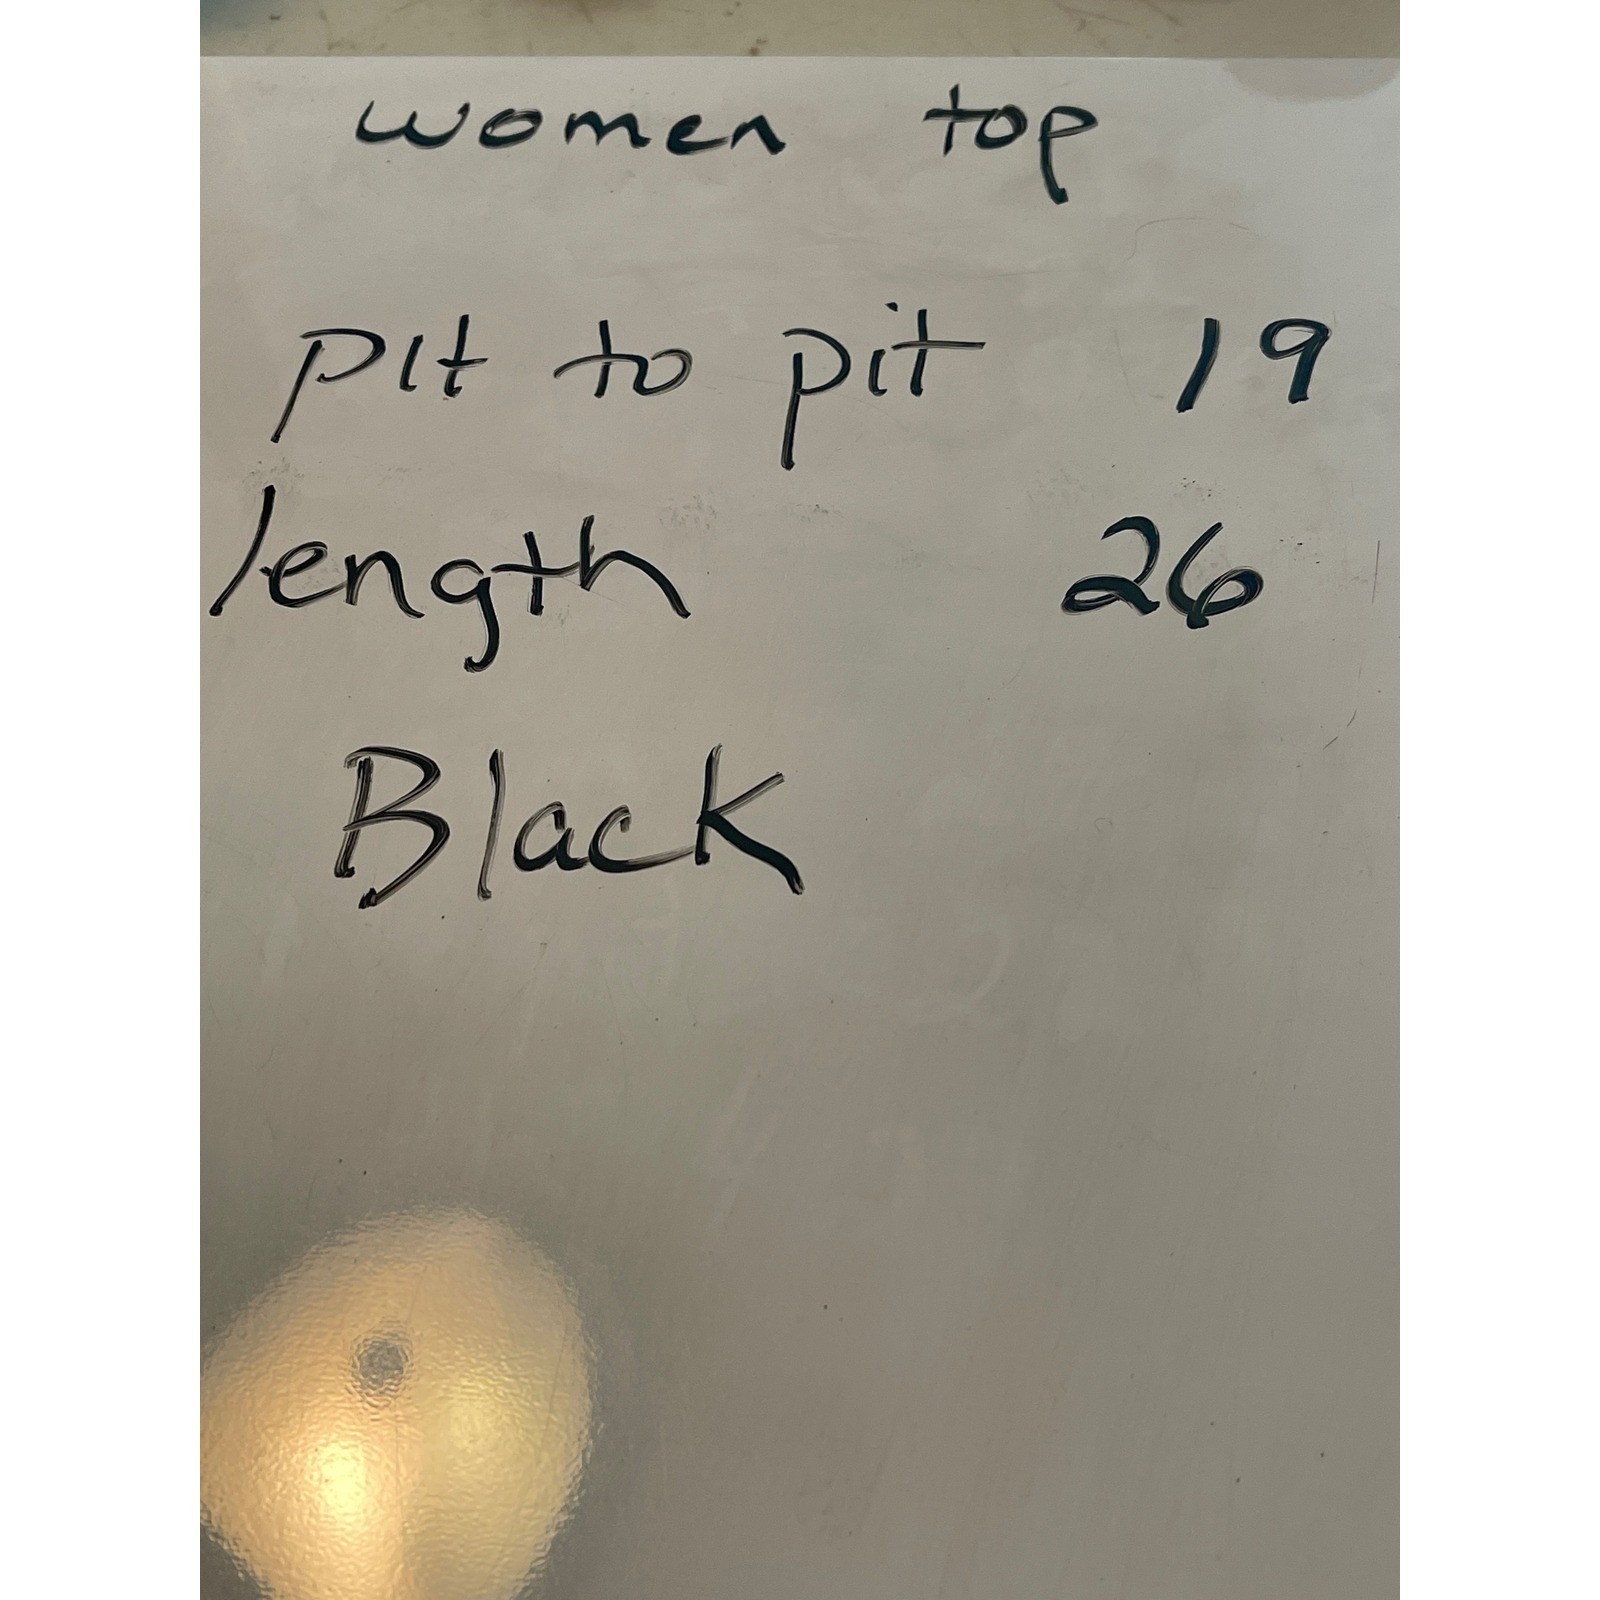 women top
pit to pit 19
length 26
Black